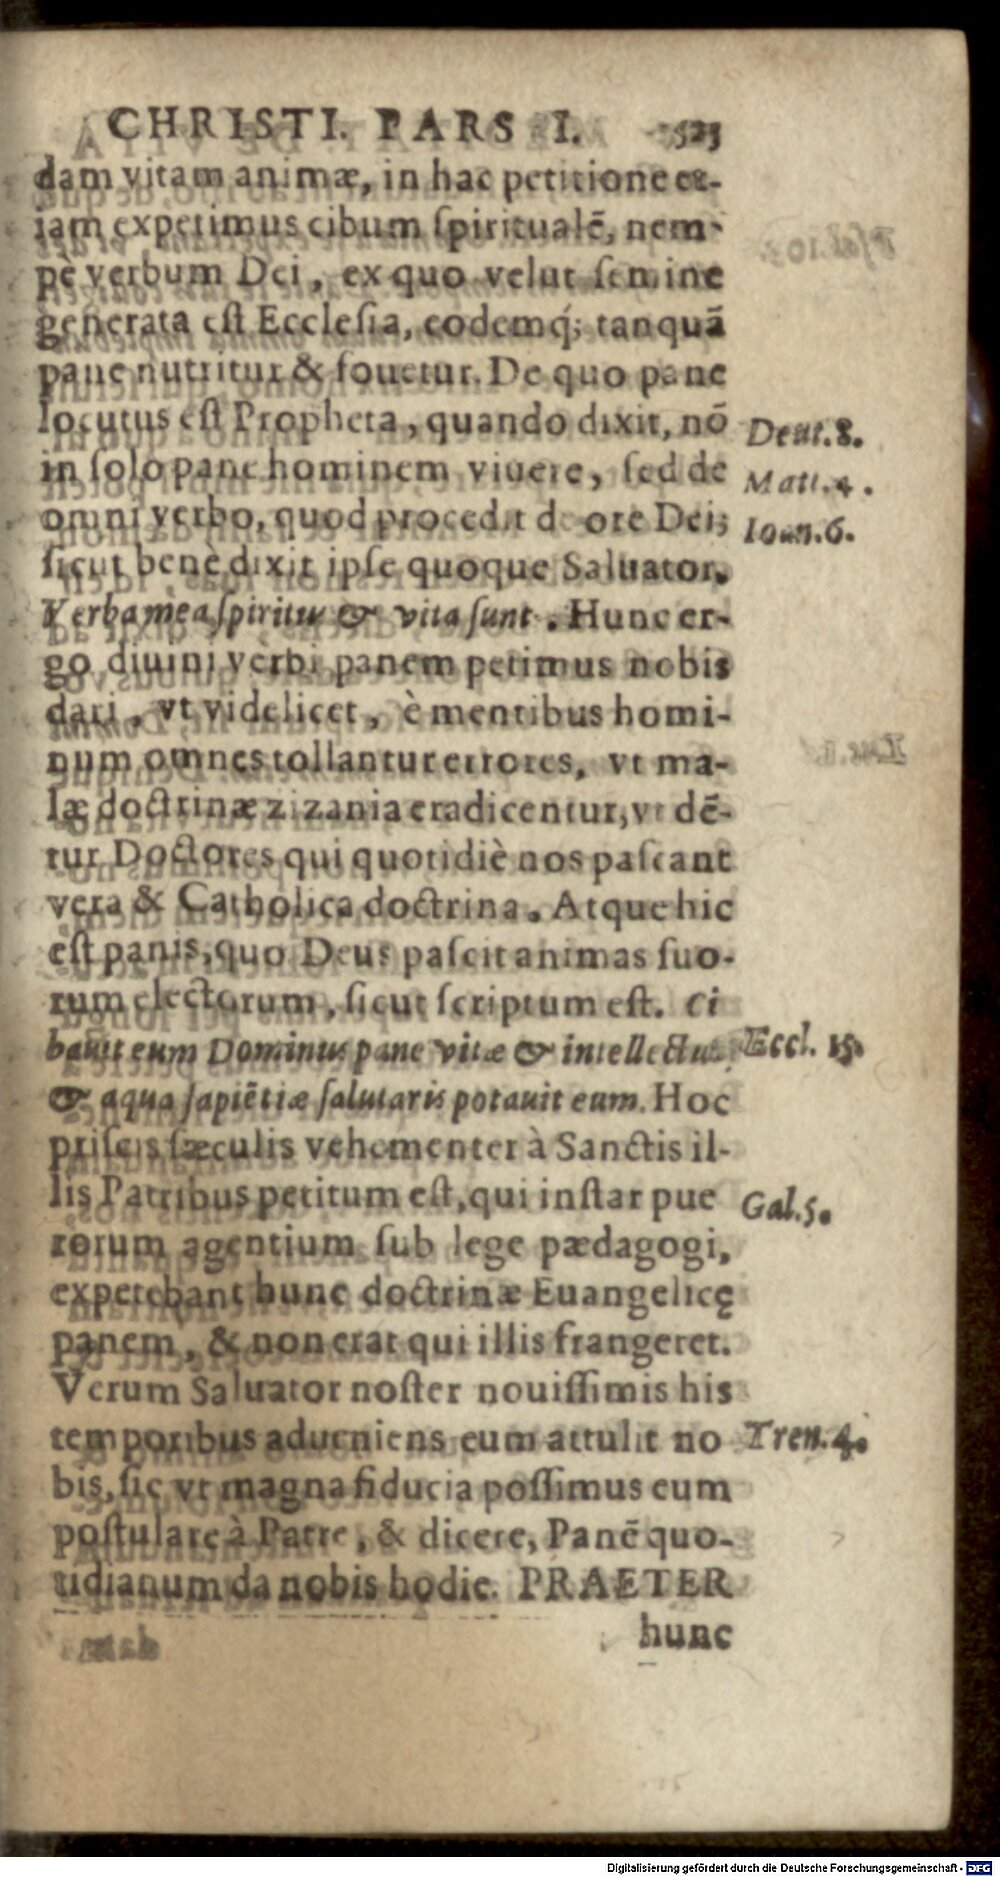 CHRISTI. PARS I. 523
dam vitam animæ, in hac petitione et-
iam expetimus cibum ſpiritualẽ, nem-
pè verbum Dei, ex quo velut ſemine
generata eſt Eccleſia, eodemq́; tanquã
pane nutritur & fouetur. De quo pane
locutus eſt Propheta, quando dixit, nõ
in ſolo pane hominem viuere, ſed de
omni verbo, quod procedit de ore Dei;
ſicut benè dixit ipſe quoque Saluator.
Verba mea ſpiritus & vita ſunt. Hunc er-
go diuini verbi panem petimus nobis
dari, vt videlicet, è mentibus homi-
num omnes tollantur errores, vt ma-
læ doctrinæ zizania eradicentur, vt dẽ-
tur Doctores qui quotidiè nos paſcant
vera & Catholica doctrina. Atque hic
eſt panis, quo Deus paſcit animas ſuo-
rum electorum, ſicut ſcriptum eſt. Ci
bauit eum Dominus pane vitæ & intellectus
& aqua ſapiẽtiæ ſalutaris potauit eum. Hoc
priſcis ſæculis vehementer à Sanctis il-
lis Patribus petitum eſt, qui inſtar pue
rorum agentium ſub lege pædagogi,
expetebant hunc doctrinæ Euangelicę
panem, & non erat qui illis frangeret.
Verum Saluator noſter nouiſſimis his
temporibus adueniens eum attulit no
bis, ſic vt magna fiducia poſſimus eum
poſtulare à Patre, & dicere, Panẽ quo-
tidianum da nobis hodie. PRAETER
hunc
Deut. 8.
Matt. 4.
Ioan. 6.
Eccl. 15.
Gal. 5.
Tren. 4.
Digitalisierung gefördert durch die Deutsche Forschungsgemeinschaft - DFG